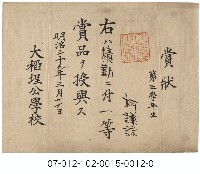 賞狀
第二學年生
柯謹諒
右ハ精勤ニ付一等
賞品ヲ授與ス
明治三十九年三月廿八日
大稻埕公學校
07-012-102-0015-0012-0